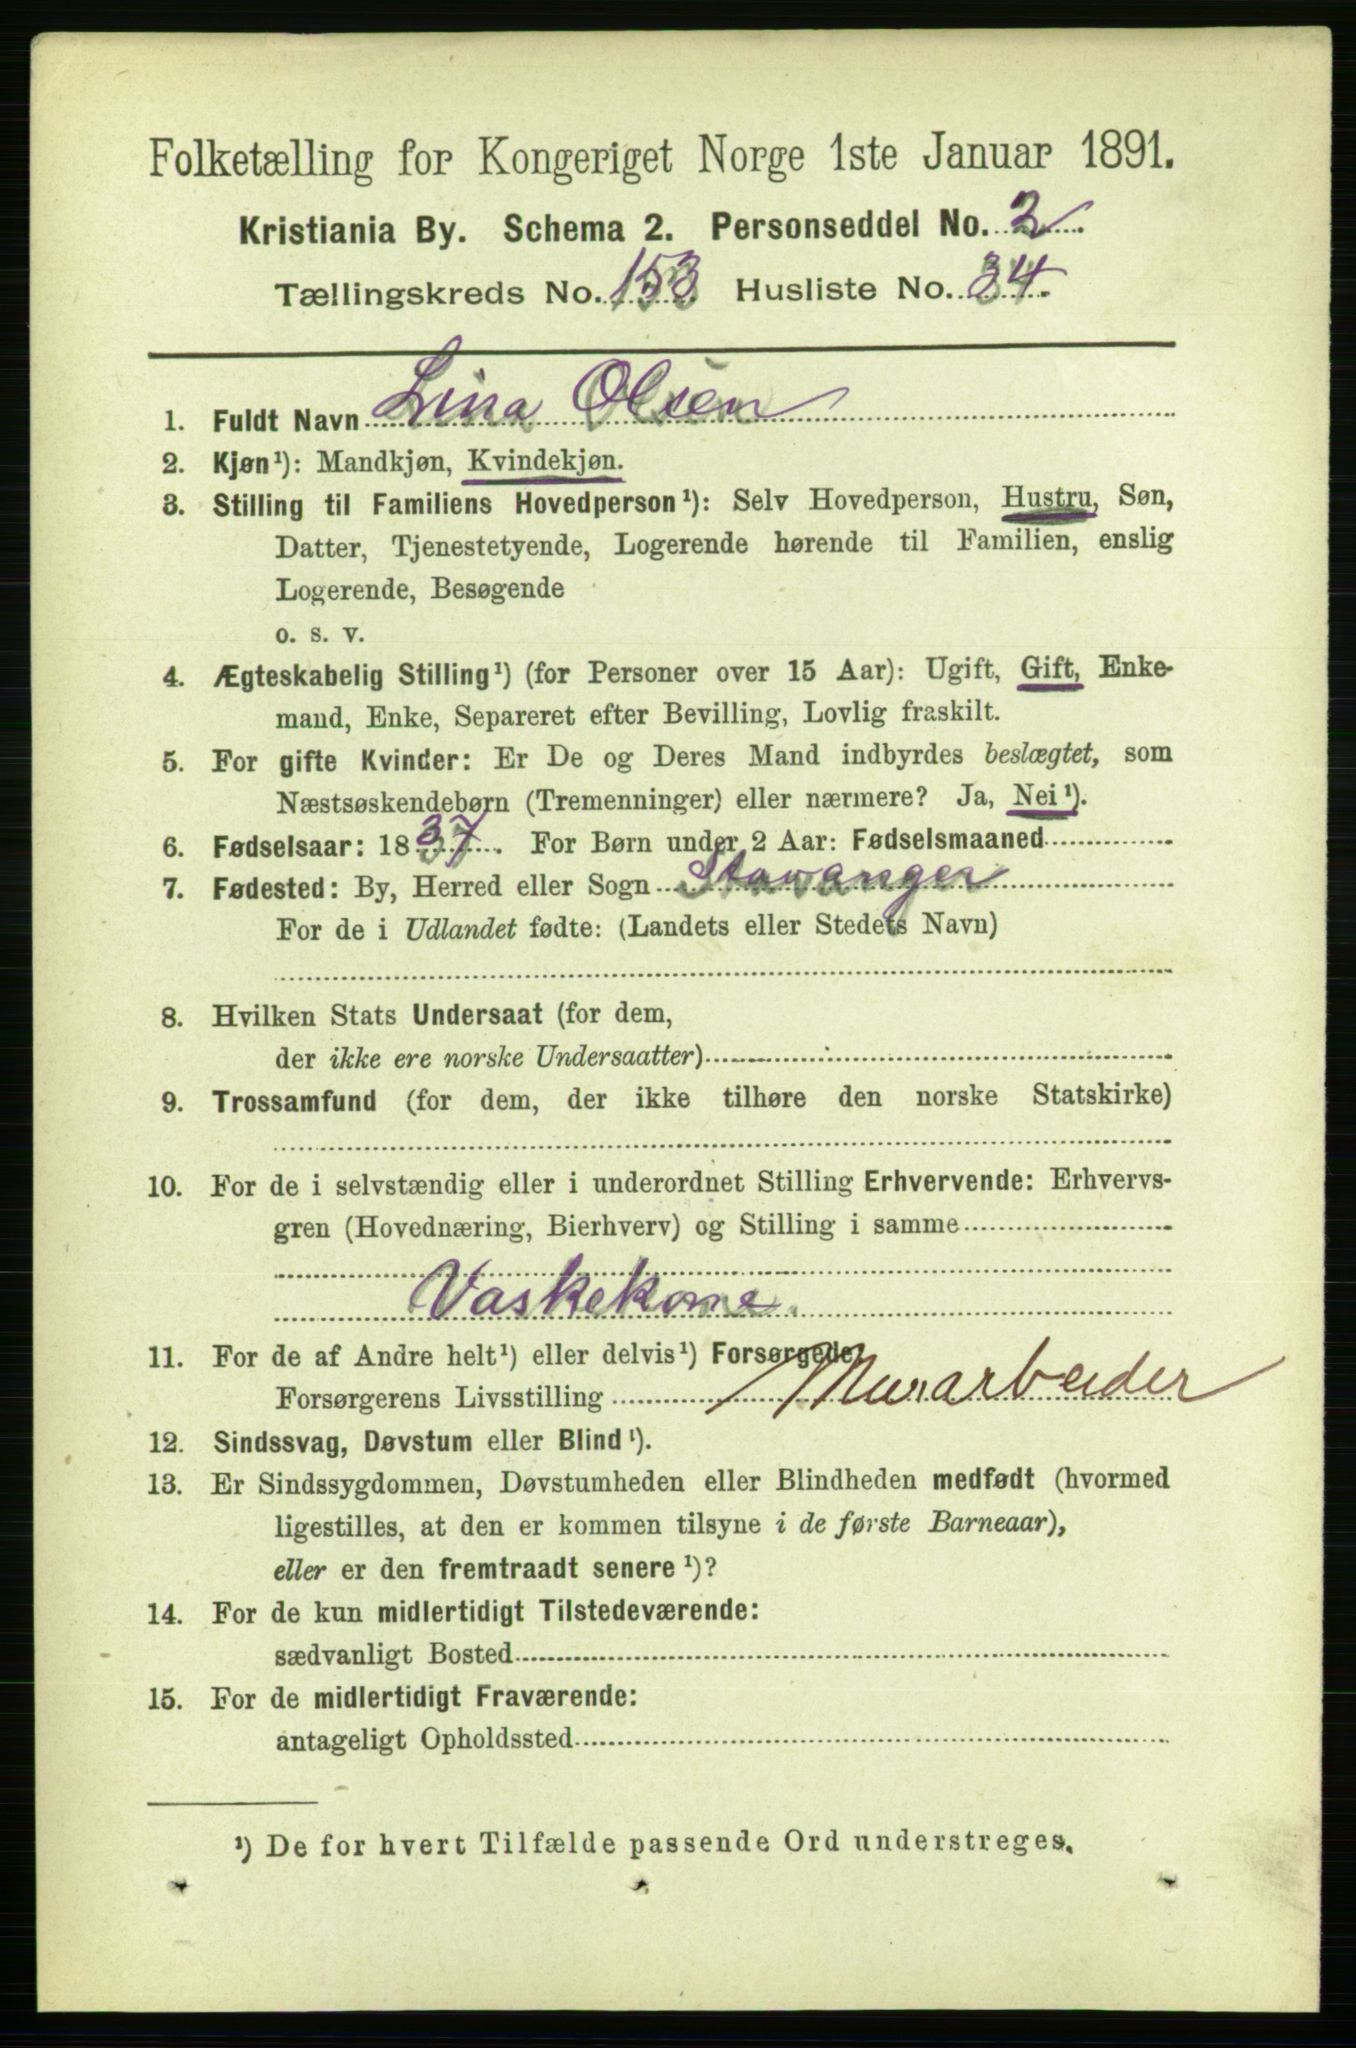 Folketælling for Kongeriget Norge 1ste Januar 1891.
Kristiania By. Schema 2. Personseddel No. 2
Tællingskreds No. 153 Husliste No. 34.
1. Fuldt Navn Lina Olsen
2. Kjøn¹): Mandkjøn, Kvindekjøn.
3. Stilling til Familiens Hovedperson¹): Selv Hovedperson, Hustru, Søn,
Datter, Tjenestetyende, Logerende hørende til Familien, enslig
Logerende, Besøgende
o. s. v.
4. Ægteskabelig Stilling¹) (for Personer over 15 Aar): Ugift, Gift, Enke-
mand, Enke, Separeret efter Bevilling, Lovlig fraskilt.
5. For gifte Kvinder: Er De og Deres Mand indbyrdes beslægtet, som
Næstsøskendebørn (Tremenninger) eller nærmere? Ja, Nei¹).
6. Fødselsaar: 1837. For Børn under 2 Aar: Fødselsmaaned
7. Fødested: By, Herred eller Sogn Stavanger
For de i Udlandet fødte: (Landets eller Stedets Navn)
8. Hvilken Stats Undersaat (for dem,
der ikke ere norske Undersaatter)
9. Trossamfund (for dem, der ikke tilhøre den norske Statskirke)
10. For de i selvstændig eller i underordnet Stilling Erhvervende: Erhvervs-
gren (Hovednæring, Bierhverv) og Stilling i samme
Vaskekone.
11. For de af Andre helt¹) eller delvis¹) Forsørgede,
Forsørgerens Livsstilling Murarbeider
12. Sindssvag, Døvstum eller Blind¹).
13. Er Sindssygdommen, Døvstumheden eller Blindheden medfødt (hvormed
ligestilles, at den er kommen tilsyne i de første Barneaar),
eller er den fremtraadt senere¹)?
14. For de kun midlertidigt Tilstedeværende:
sædvanligt Bosted
15. For de midlertidigt Fraværende:
antageligt Opholdssted
¹) De for hvert Tilfælde passende Ord understreges.